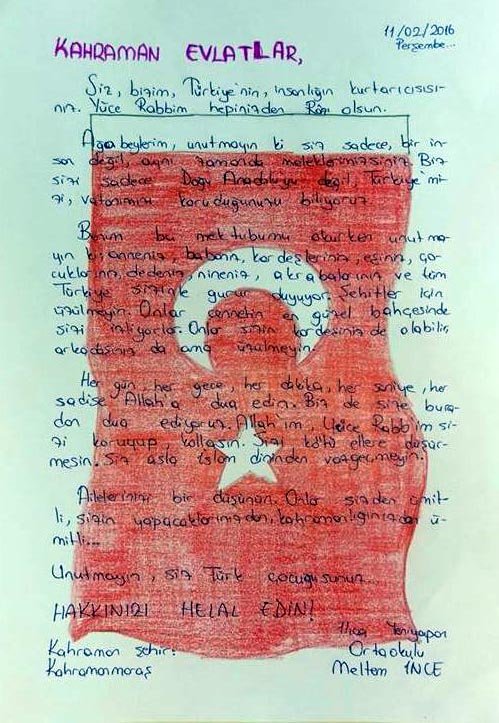 11/02/2016
Perşembe...
KAHRAMAN EVLATLAR,
Siz, bizim, Türkiye'nin, insanlığın kurtarıcısısı-
nız. Yüce Rabbim hepinizden Razı olsun.
Ağabeylerim, unutmayın ki siz sadece, bir in-
san değil, aynı zamanda meleklerimizsiniz. Biz
sizi sadece Doğu Anadoluyu değil, Türkiye'mi-
zi, vatanımızı koruduğunuzu biliyoruz.
Benim bu mektubumu okurken unutma-
yın ki; anneniz, babanız, kardeşleriniz, eşiniz, ço-
cuklarınız, dedeniz nineniz, akrabalarınız ve tüm
Türkiye sizinle gurur duyuyor. Şehitler için
üzülmeyin. Onlar cennetin en güzel bahçesinde
sizi izliyorlar. Onlar sizin kardeşiniz de olabilir,
arkadaşınız da ama üzülmeyin.
Her gün, her gece, her dakika, her saniye, her
sadise Allah'a dua edin. Biz de size bura-
dan dua ediyoruz. Allah'ım, Yüce Rabb'im si-
zi koruyup, kollasın. Sizi kötü ellere düşür-
mesin. Siz asla İslam dininden vazgeçmeyin.
Ailelerinizi bir düşünün. Onlar sizden ümit-
li, sizin yapacaklarınızdan, kahramanlığınızdan ü-
mitli...
Unutmayın, siz Türk çocuğusunuz...
HAKKINIZI HELAL EDİN!
Ilıca Yeniyapan
Kahraman şehir: Ortaokulu
Kahramanmaraş Meltem İNCE